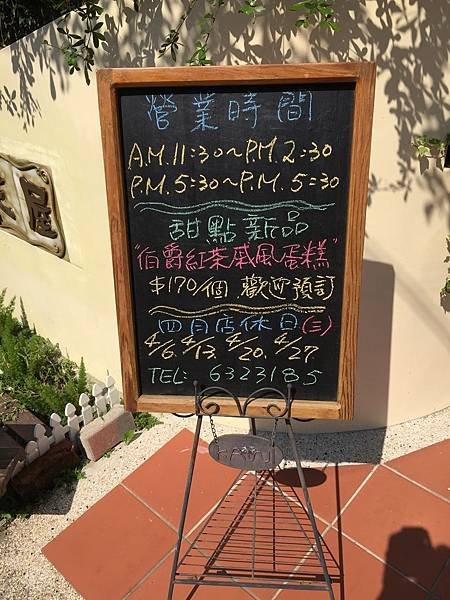 營業時間
A.M.11:30~P.M.2:30
P.M.5:30~P.M.5:30
甜點新品
"伯爵紅茶戚風蛋糕"
$170/個 歡迎預訂
四月店休日(三)
4/6. 4/13. 4/20. 4/27
TEL: 6323185
屋